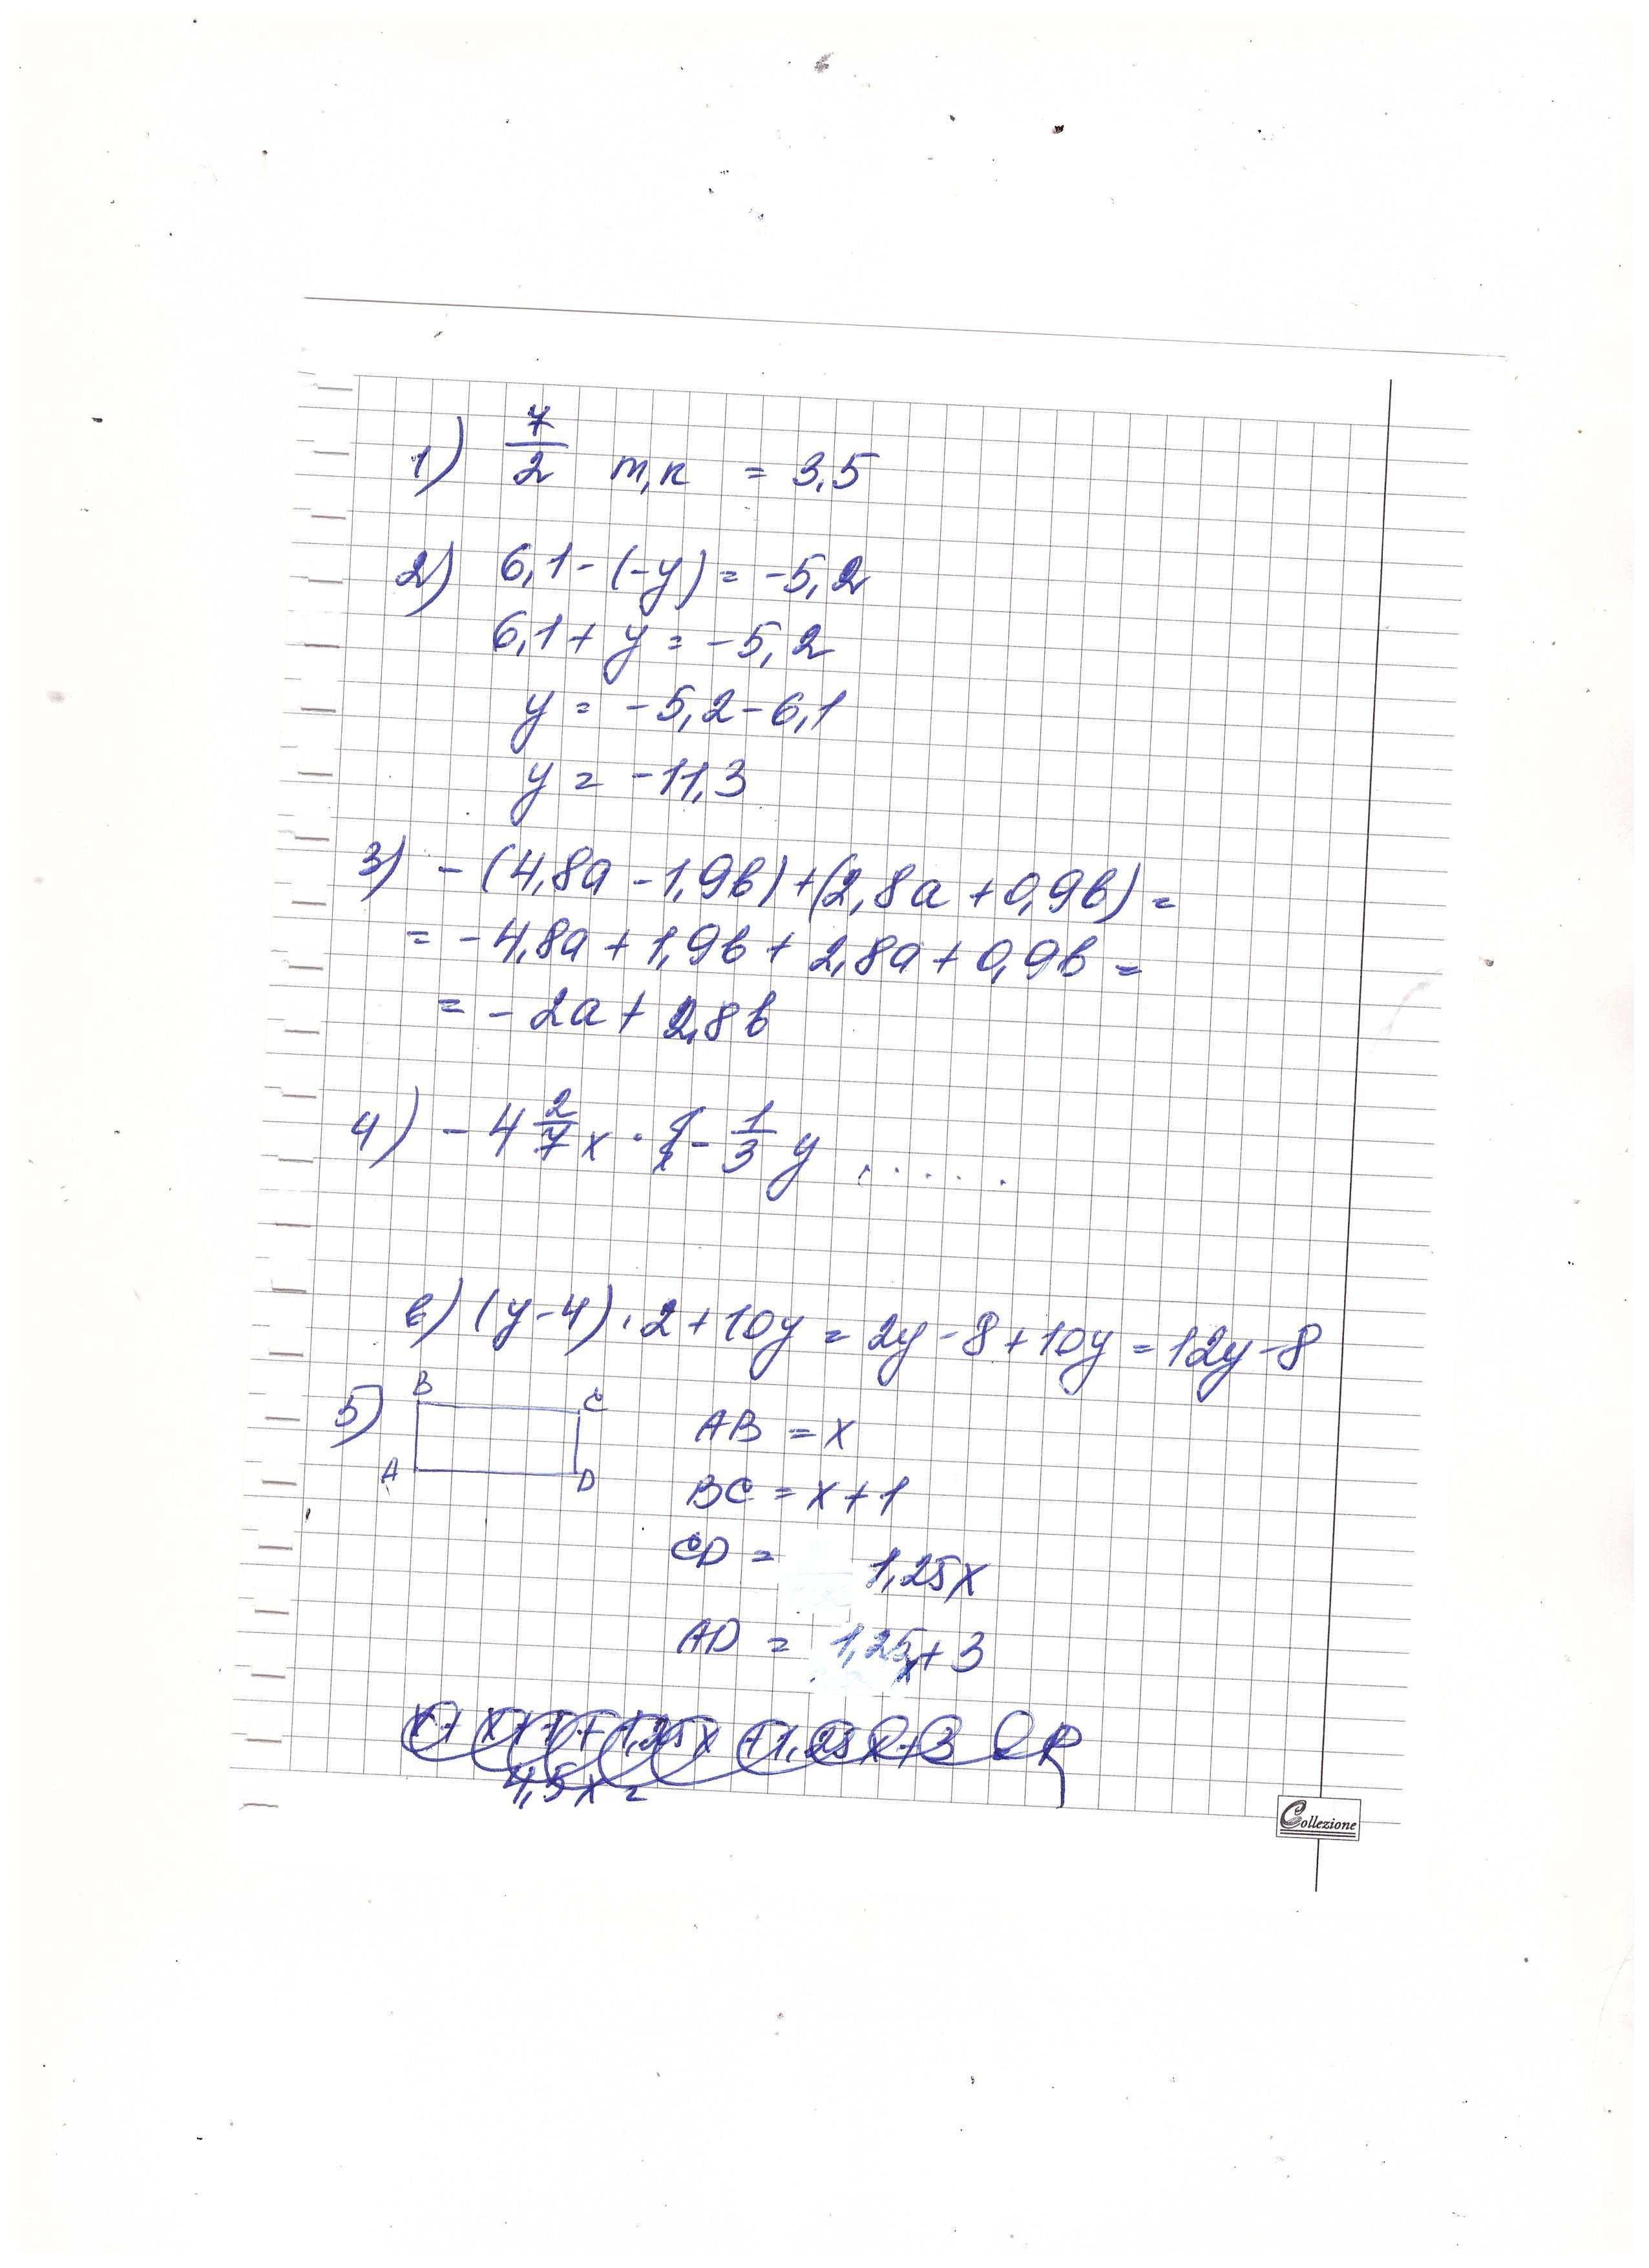 1) 7/2 т,к = 3,5
2) 6,1 - (-y) = -5,2
6,1 + y = -5,2
y = -5,2 - 6,1
y = -11,3
3) - (4,8a - 1,9b) + (2,8a + 0,9b) =
= -4,8a + 1,9b + 2,8a + 0,9b =
= - 2a + 2,8b
4) - 4 2/7 x · - 1/3 y ......
в) (y-4) · 2 + 10y = 2y - 8 + 10y = 12y - 8
5) B C
A D
AB = x
BC = x + 1
CD = 1,25x
AD = 1,25x + 3
4,5x =
Collezione